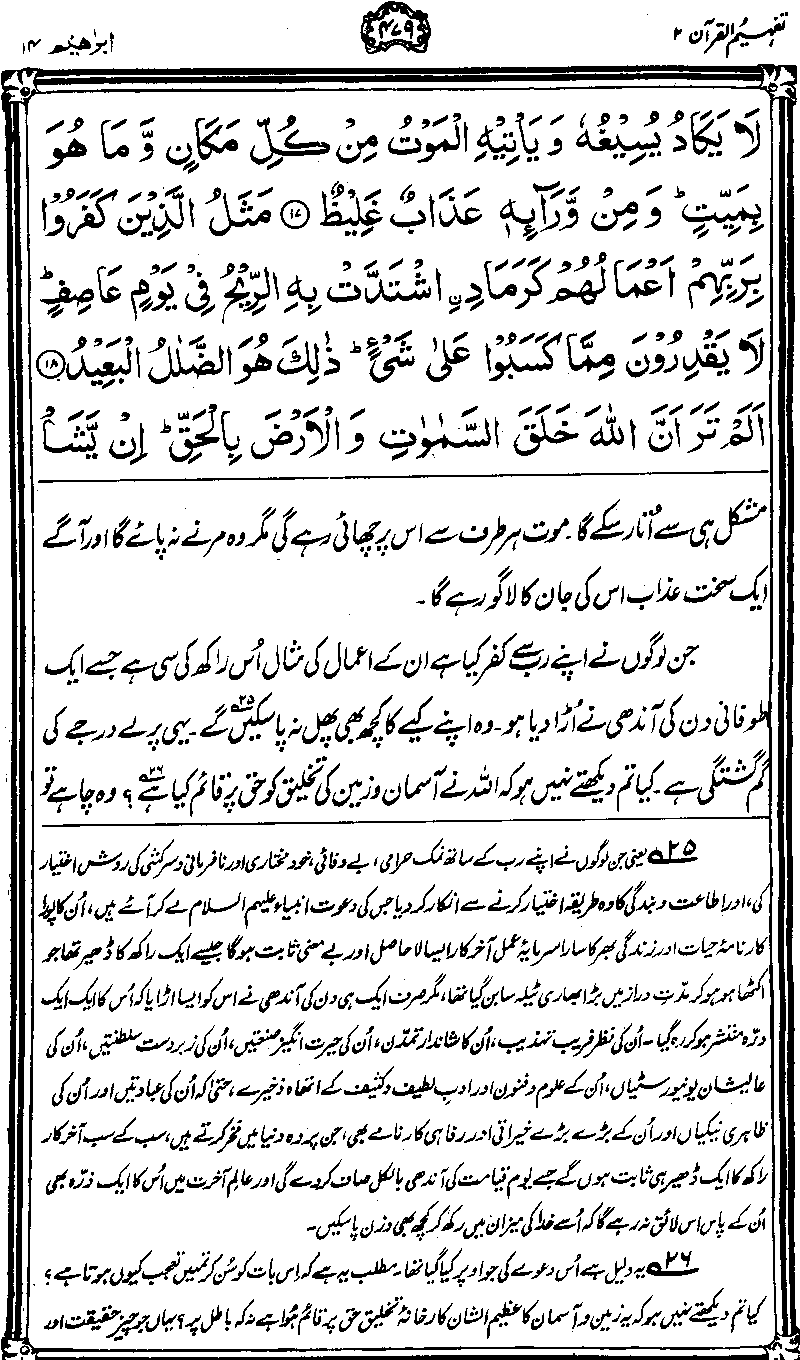 تفہیم القرآن ۲
۴۷۹
ابراھیم ۱۴
لَا يَكَادُ يُسِيْغُهٗ وَيَاْتِيْهِ الْمَوْتُ مِنْ كُلِّ مَكَانٍ وَّمَا هُوَ
بِمَيِّتٍ ؕ وَمِنْ وَّرَآئِهٖ عَذَابٌ غَلِيْظٌ ﴿۱۷﴾ مَثَلُ الَّذِيْنَ كَفَرُوْا
بِرَبِّهِمْ اَعْمَالُهُمْ كَرَمَادِ ِۨاشْتَدَّتْ بِهِ الرِّيْحُ فِيْ يَوْمٍ عَاصِفٍ ؕ
لَا يَقْدِرُوْنَ مِمَّا كَسَبُوْا عَلٰى شَيْءٍ ؕ ذٰلِكَ هُوَ الضَّلٰلُ الْبَعِيْدُ ﴿۱۸﴾
اَلَمْ تَرَ اَنَّ اللّٰهَ خَلَقَ السَّمٰوٰتِ وَالْاَرْضَ بِالْحَقِّ ؕ اِنْ يَّشَاْ
مشکل ہی سے اُتار سکے گا۔ موت ہر طرف سے اس پر چھائی رہے گی مگر وہ مرنے نہ پائے گا اور آگے
ایک سخت عذاب اس کی جان کا لاگو رہے گا۔
جن لوگوں نے اپنے رب سے کفر کیا ہے ان کے اعمال کی مثال اُس راکھ کی سی ہے جسے ایک
طوفانی دن کی آندھی نے اُڑا دیا ہو۔ وہ اپنے کیے کا کچھ بھی پھل نہ پا سکیں گے۲۵۔ یہی پرلے درجے کی
گم گشتگی ہے۔ کیا تم دیکھتے نہیں ہو کہ اللہ نے آسمان و زمین کی تخلیق کو حق پر قائم کیا ہے۲۶؟ وہ چاہے تو
۲۵ یعنی جن لوگوں نے اپنے رب کے ساتھ نمک حرامی، بے وفائی، خود مختاری اور نافرمانی و سرکشی کی روش اختیار
کی، اور اطاعت و بندگی کا وہ طریقہ اختیار کرنے سے انکار کر دیا جس کی دعوت انبیاء علیہم السلام لے کر آئے ہیں، اُن کا پورا
کارنامۂ حیات اور زندگی بھر کا سارا سرمایۂ عمل آخر کار ایسا لا حاصل اور بے معنی ثابت ہوگا جیسے ایک راکھ کا ڈھیر تھا جو
اکٹھا ہو ہو کر مدتِ دراز میں بڑا بھاری ٹیلہ سا بن گیا تھا، مگر صرف ایک ہی دن کی آندھی نے اس کو ایسا اڑایا کہ اُس کا ایک ایک
ذرّہ منتشر ہو کر رہ گیا۔ اُن کی نظر فریب تہذیب، اُن کا شاندار تمدّن، اُن کی حیرت انگیز صنعتیں، اُن کی زبردست سلطنتیں، اُن کی
عالیشان یونیورسٹیاں، اُن کے علوم و فنون اور ادبِ لطیف و کثیف کے اتھاہ ذخیرے، حتیٰ کہ اُن کی عبادتیں اور اُن کی
ظاہری نیکیاں اور اُن کے بڑے بڑے خیراتی اور رفاہی کارنامے بھی، جن پر وہ دنیا میں فخر کرتے ہیں، سب کے سب آخر کار
راکھ کا ایک ڈھیر ہی ثابت ہوں گے جسے یوم قیامت کی آندھی بالکل صاف کر دے گی اور عالمِ آخرت میں اُس کا ایک ذرّہ بھی
اُن کے پاس اس لائق نہ رہے گا کہ اُسے خدا کی میزان میں رکھ کر کچھ بھی وزن پا سکیں۔
۲۶ یہ دلیل ہے اُس دعوے کی جو اوپر کیا گیا تھا۔ مطلب یہ ہے کہ اِس بات کو سُن کر تمہیں تعجب کیوں ہوتا ہے؟
کیا تم دیکھتے نہیں ہو کہ یہ زمین و آسمان کا عظیم الشان کارخانۂ تخلیق حق پر قائم ہوا ہے نہ کہ باطل پر؟ یہاں جو چیز حقیقت اور